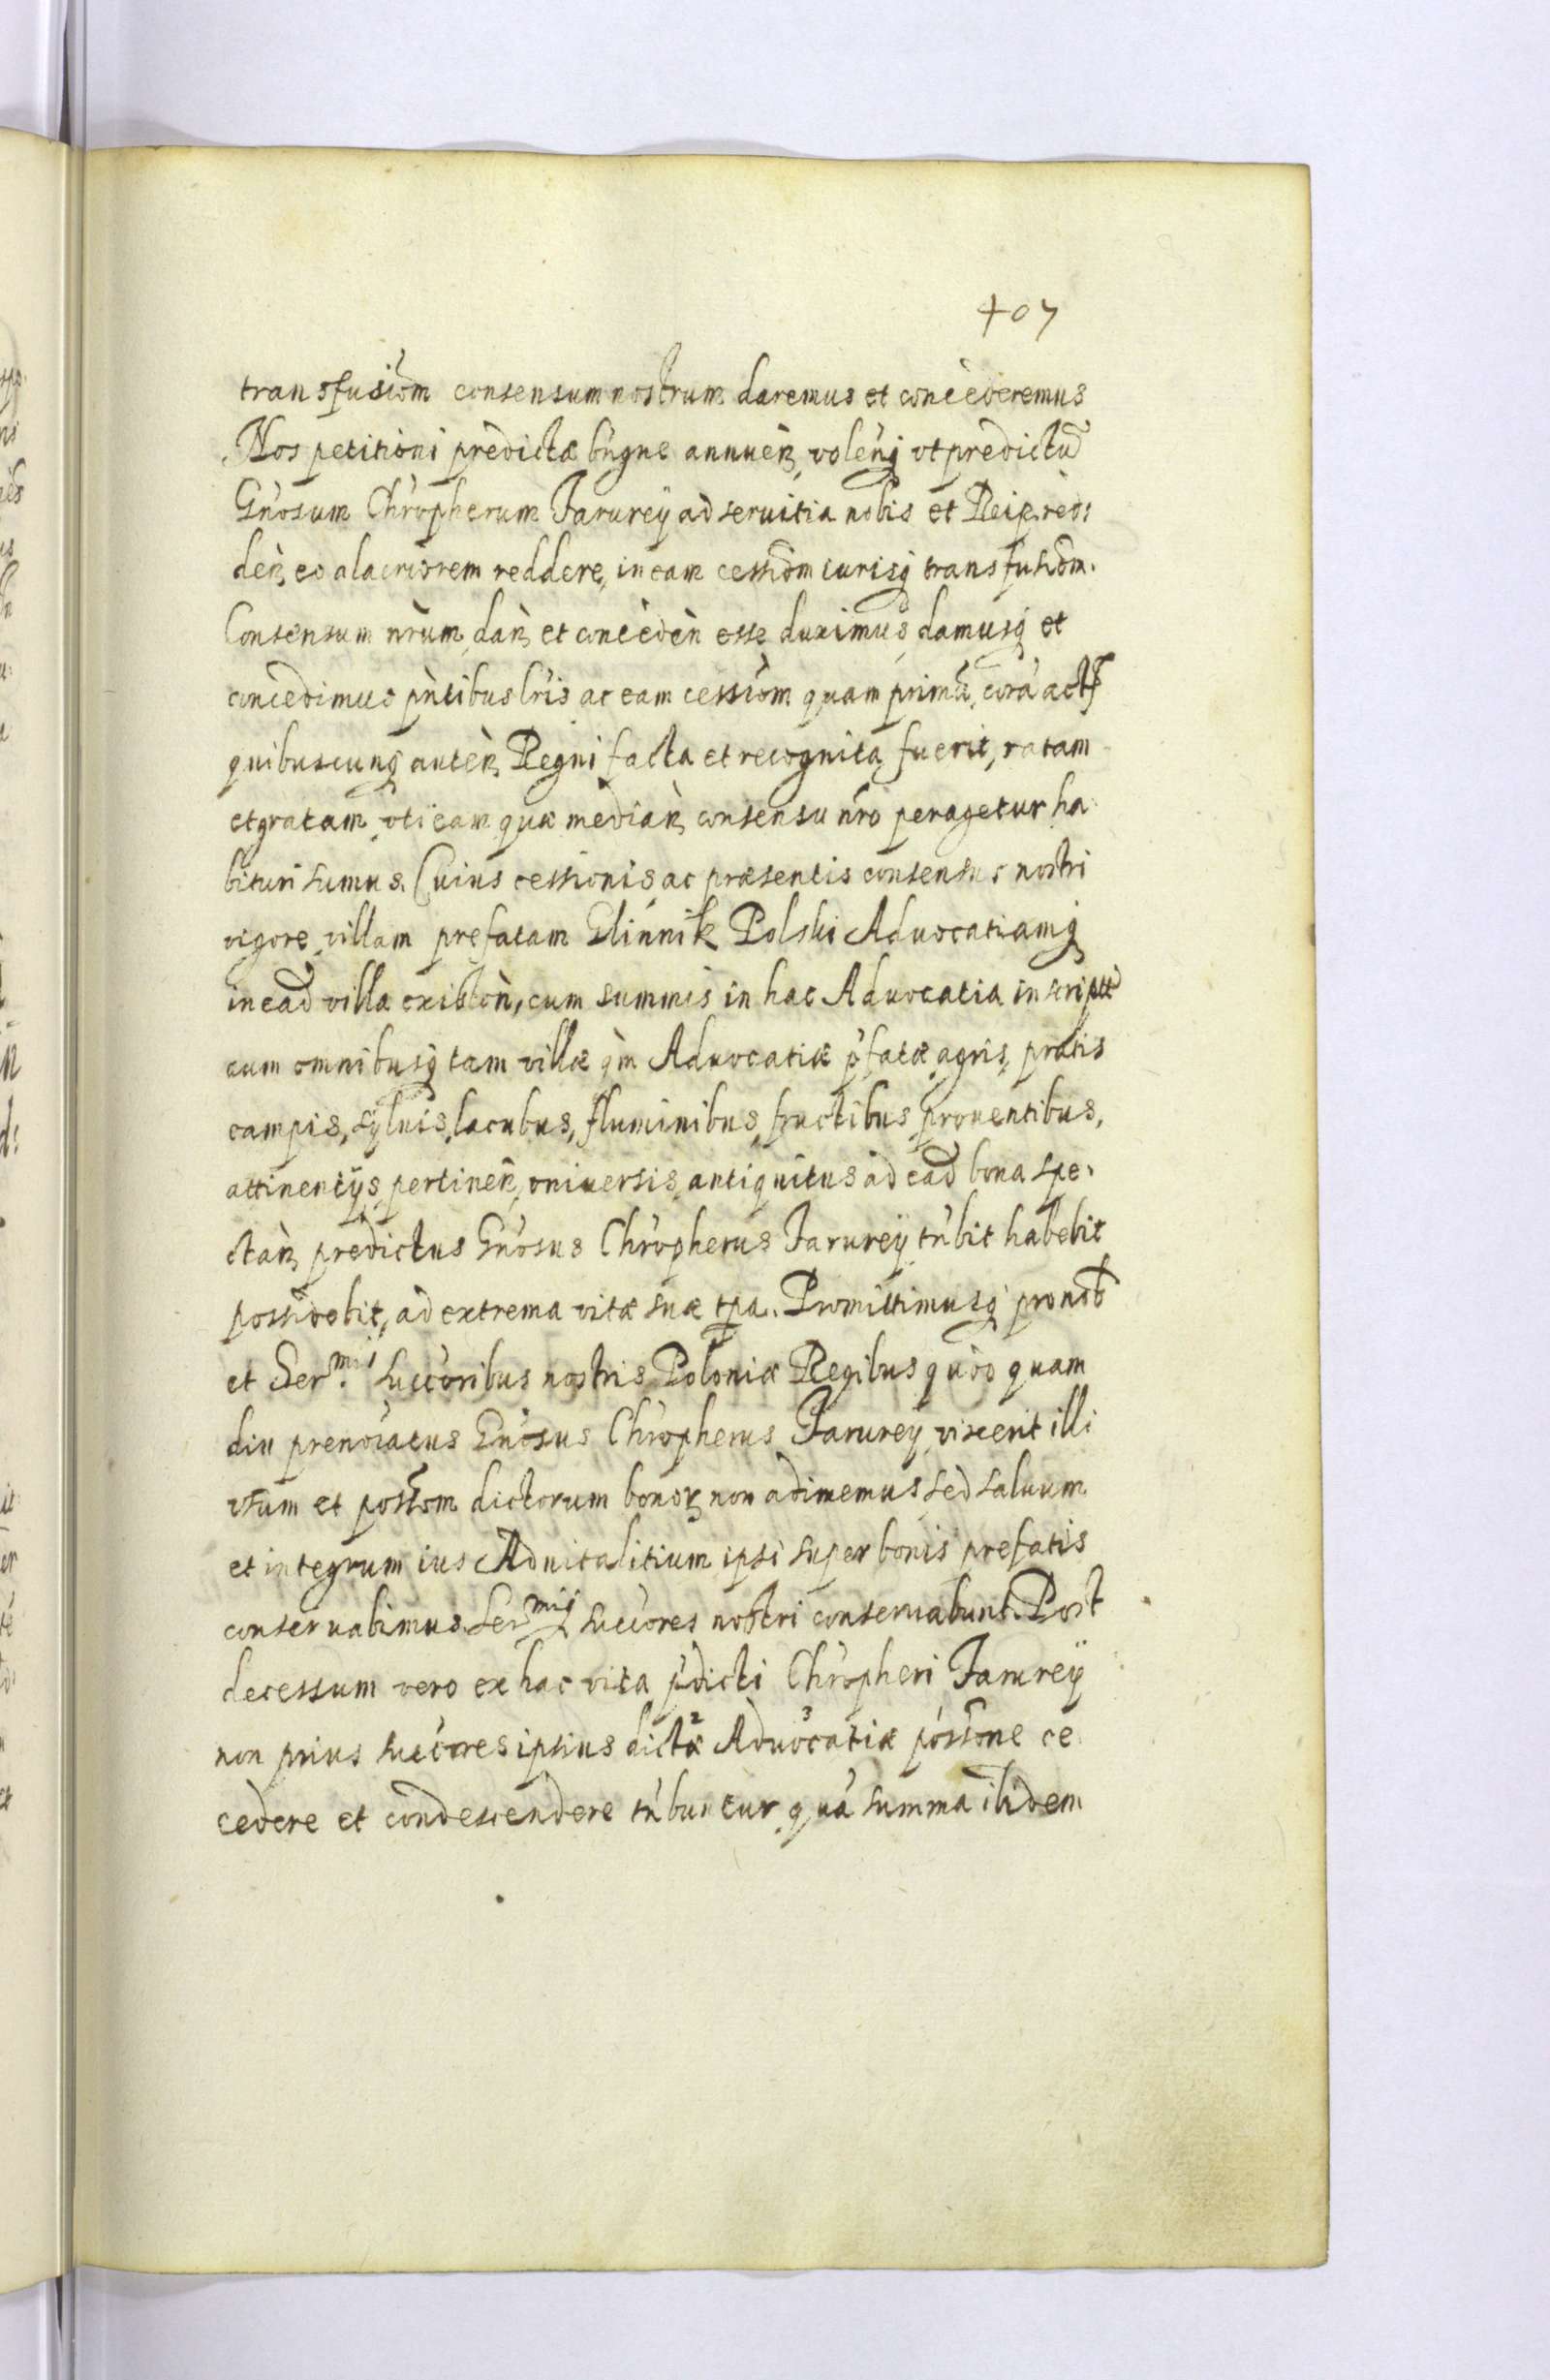 407
transfusiõm consensum nostrum daremus et concederemus
Nos petitioni predictæ bñgne annueñ, voleñq vt predictũ
Gñosum Chrõpherum Jarurey ad seruitia nobis et Reip. red:
deñ, eo alacriorem reddere, in eam cessiõm iurisq transfusiõm.
Consensum nr̃um, dañ et concedeñ esse duximus, damusq et
concedimus pñtibus lr̃is ac eam cessiõm quam primũ, corã actis
quibuscunq auteñ Regni facta et recognita fuerit, ratam
et gratam vti eam quæ mediañ consensu nr̃o peragetur ha
bituri sumus. Cuius cessionis ac præsentis consensus nostri
vigore villam prefatam Glinnik Polski Aduocatiamq
in ead̃ villa existeñ, cum summis in hac Aduocatia inscriptis
cum omnibusq tam villæ qm̃ Aduocatiæ p̃fatæ agris, pratis
campis, syluis, lacubus, fluminibus, fructibus prouentibus,
attinentijs pertineñ, vniuersis antiquitus ad ead̃ bona spe.
ctañ, predictus Gñosus Chrõpherus Jarurey tñbit habebit
possidebit, ad extrema vitæ suæ tp̃a. Promittimusq pro nob̃
et Ser.mis succoribus nostris Poloniæ Regibus quõd quam
diu prenoĩatus Gñosus Chrõpherus Jarurey vixerit illi
vsum et possm̃ dictorum bonor̃ non adimemus sed saluum
et integrum ius Aduitalitium ipsi super bonis prefatis
conseruabimus. Sermij succores nostri conseruabunt. Post
decessum vero ex hac vita p̃dicti Chrõpheri Jarurey
non prius succores ipsius dictæ Aduocatiæ possõne ce
cedere et condescendere tñbuntur quã summa ibidem